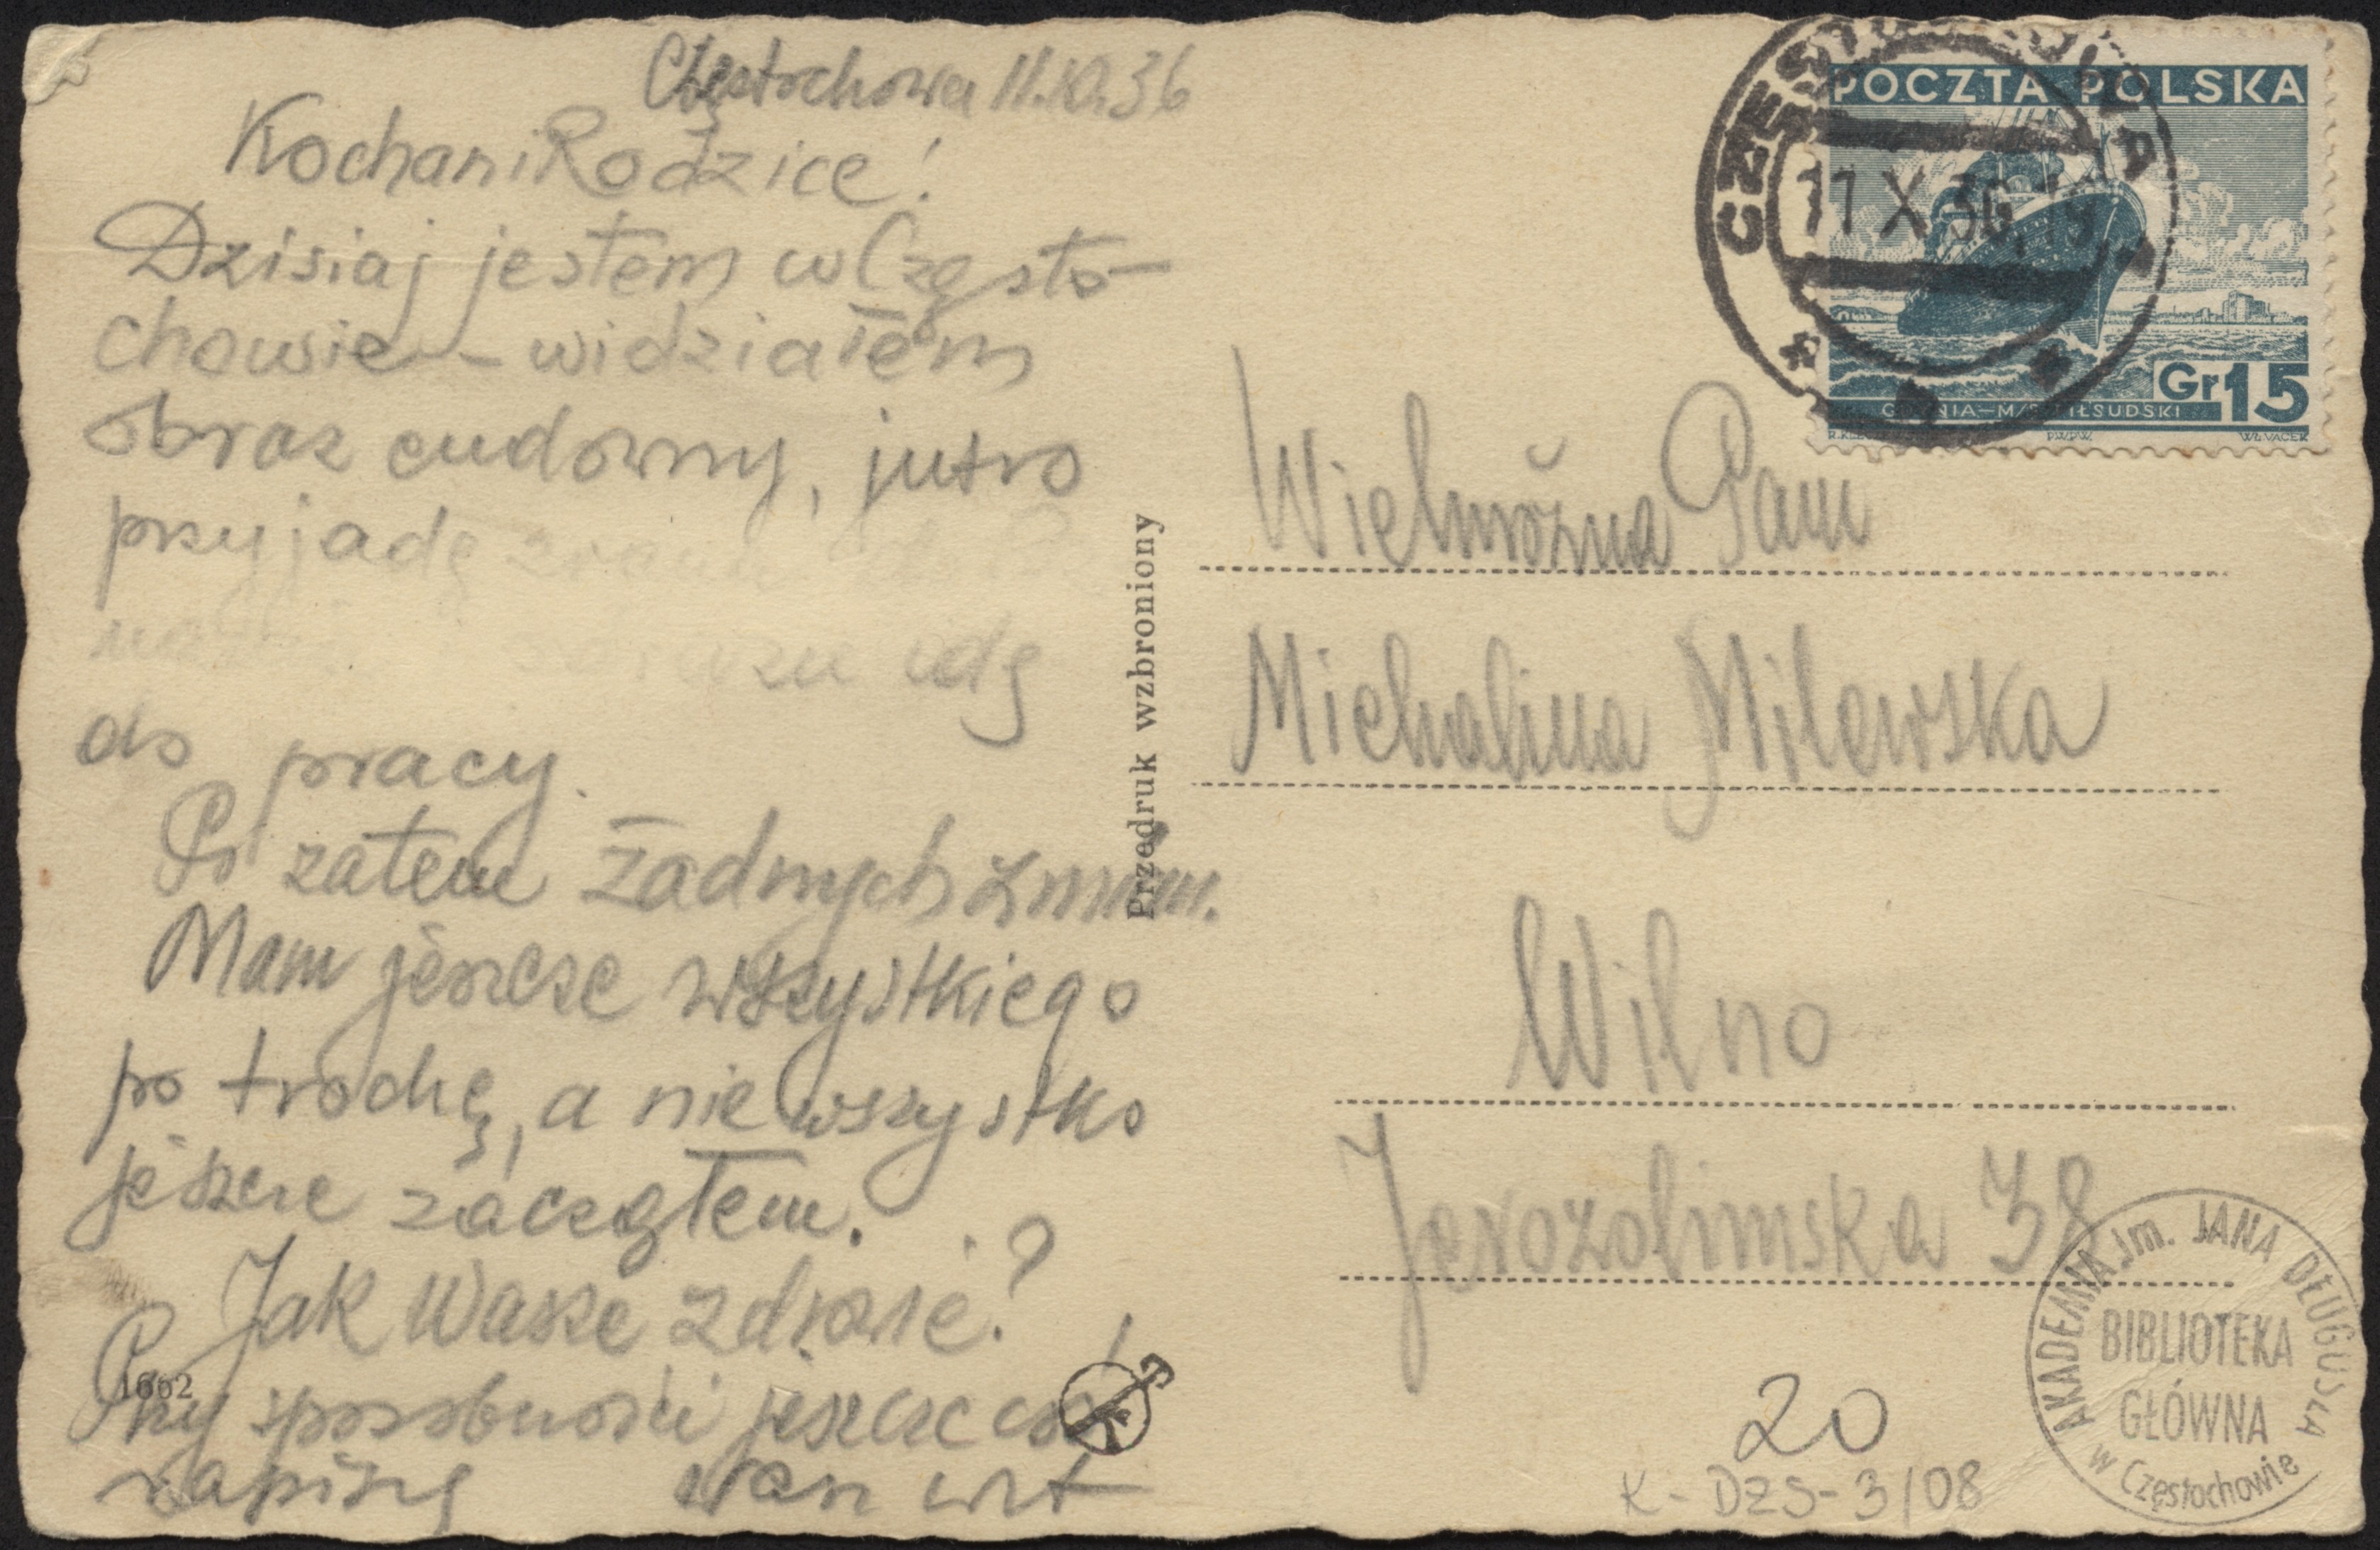 Częstochowa 11.XI.36
Kochani Rodzice!
Dzisiaj jestem w Często-
chowie - widziałem
obraz cudowny, jutro
przyjadę
do pracy.
Po zatem żadnych zmian.
Mam jeszcze wszystkiego
po trochę, a nie wszystko
jeszcze zacząłem.
Jak Wasze zdrowie?
Przy sposobności jeszcze coś
napiszę
1662
Przedruk wzbroniony
POCZTA POLSKA
11 X 36
Gr 15
GDYNIA—M/S PIŁSUDSKI
P.W.P.W.
WŁ.VACEK
Wielmożna Pani
Michalina Milewska
Wilno
Jerozolimska 38
AKADEMIA im. JANA DŁUGOSZA
BIBLIOTEKA
GŁÓWNA
w Częstochowie
20
K-DZS-3/08